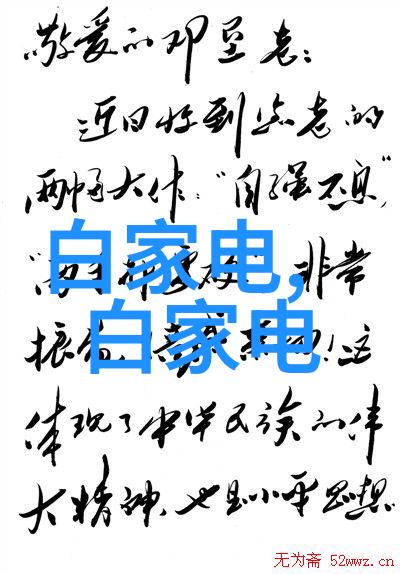 敬爱的邓垦老：
近日收到您老的
两幅大作：“自强不息”
非常
振奋
！这
体现了中华民族的伟
大精神，也是小平思想
白家电,
白家电
无为斋 52wwz.cn